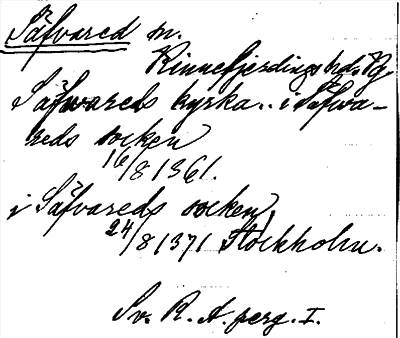 Säfvared sn.
Kinnefjerdings hd. Vg.
Säfvareds kyrka.. i Säfva-
reds socken
16/8 1361.
i Säfvareds socken
24/8 1371 Stockholm.
Sv. R. A. perg. I.